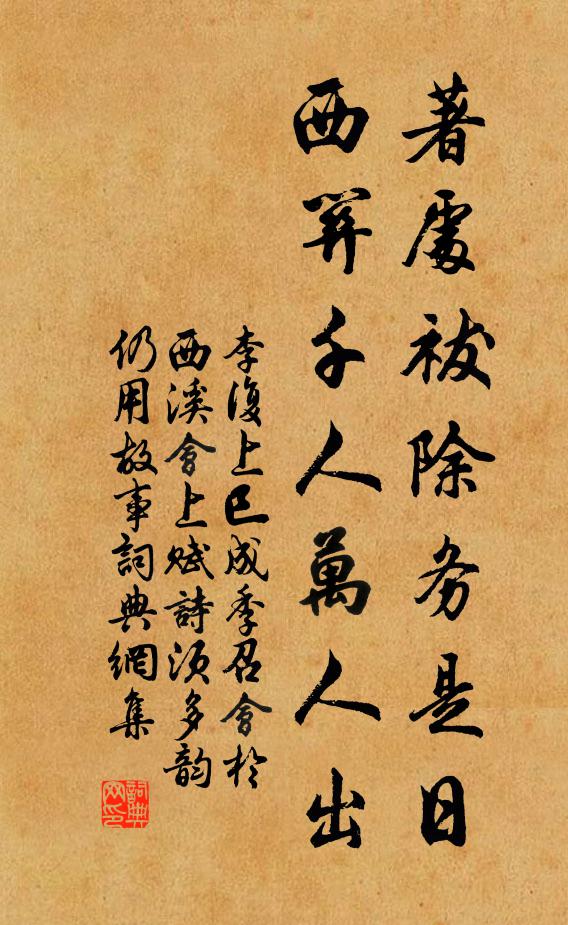 著處祓除务是日
西千人萬人出
李復上巳成季召會於
西溪會上赋詩須多韵
仍用故事詞典網集
詞典网印